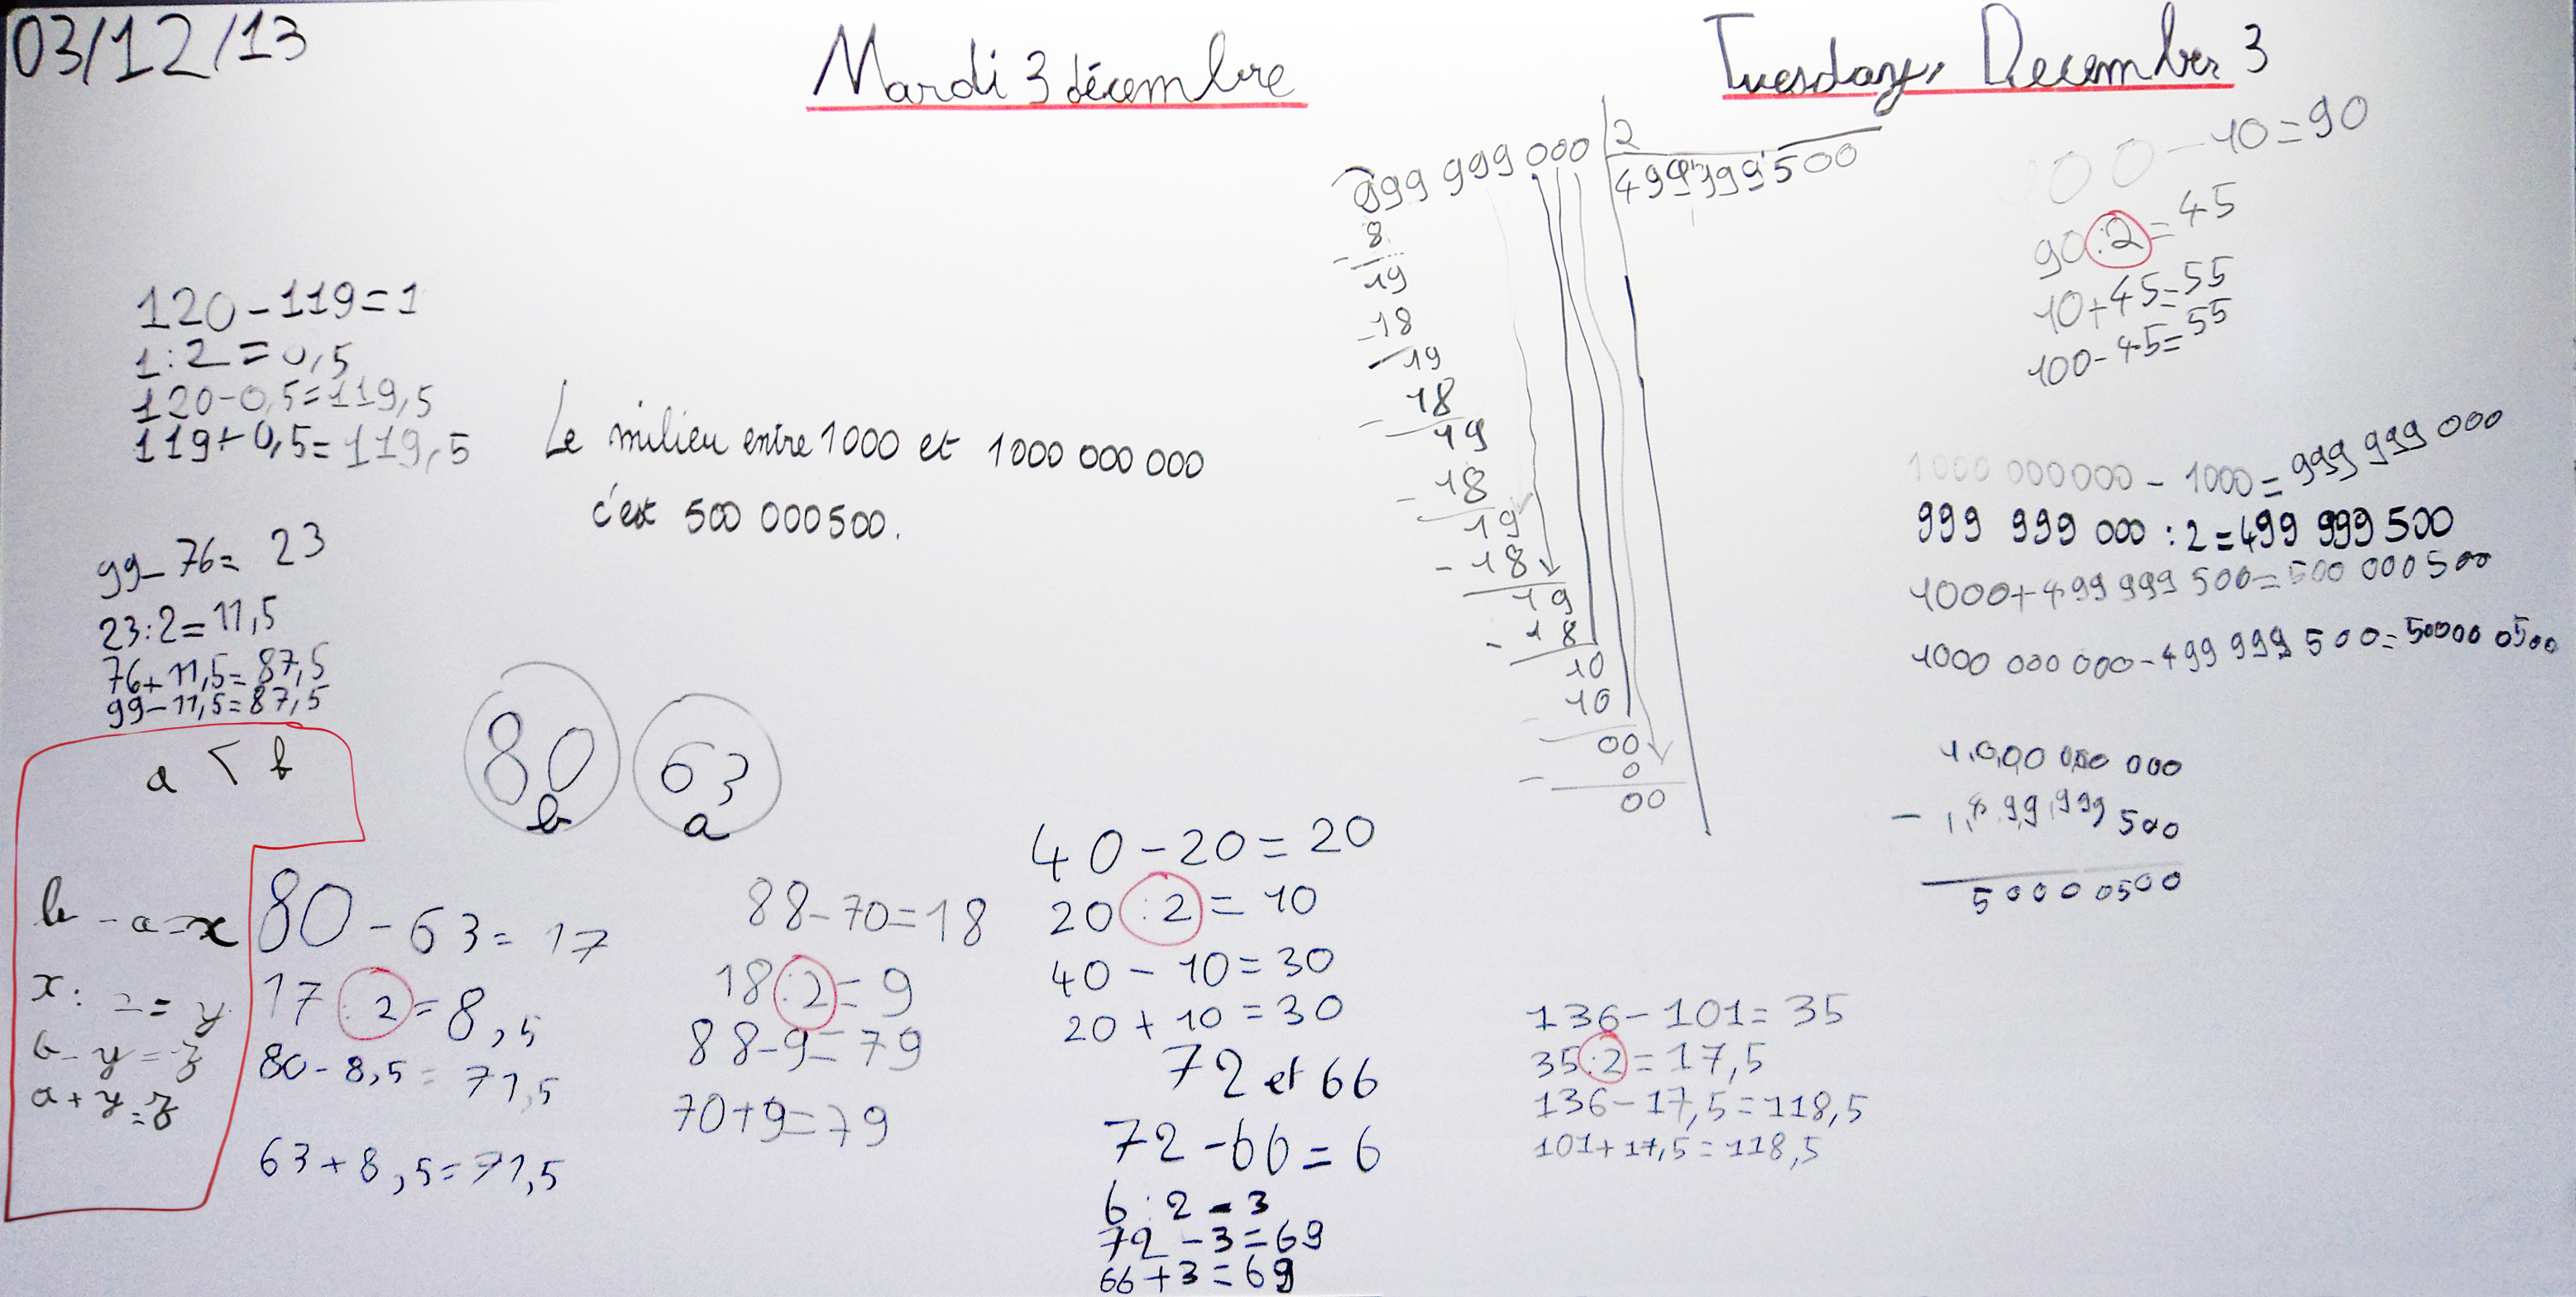 03/12/13
Mardi 3 décembre
Tuesday, December 3
120-119=1
1:2=0,5
120-0,5=119,5
119+0,5=119,5
99-76= 23
23:2=11,5
76+11,5=87,5
99-11,5=87,5
a < b
b - a = x
x : 2 = y
b - y = z
a + y = z
Le milieu entre 1000 et 1000 000 000
c'est 500 000 500.
80
b
63
a
80 - 63 = 17
17 : 2 = 8,5
80 - 8,5 = 71,5
63 + 8,5 = 71,5
88-70=18
18:2=9
88-9=79
70+9=79
40-20=20
20:2=10
40-10=30
20+10=30
72 et 66
72-66=6
6:2=3
72-3=69
66+3=69
999 999 000 | 2
499 999 500
- 8
19
-18
19
- 18
19
- 18
19
- 18
19
- 18
10
- 10
00
- 0
00
136-101=35
35:2=17,5
136-17,5=118,5
101+17,5=118,5
100-10=90
90:2=45
10+45=55
100-45=55
1000 000 000 - 1000 = 999 999 000
999 999 000 : 2 = 499 999 500
1000+499 999 500=500 000 500
1000 000 000-499 999 500=500000500
1000 000 000
- 499 999 500
500000500